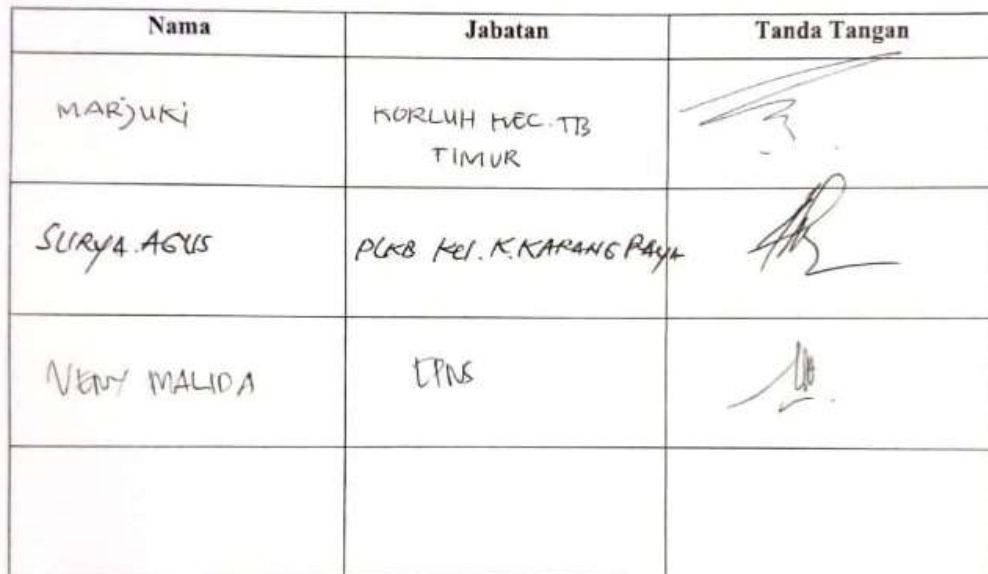 Nama Jabatan Tanda Tangan
MARJUKI KORLUH KEC. TB
TIMUR
SURYA. AGUS PLKB Kel. K. KARANG RAYA
VENY MALIDA CPNS